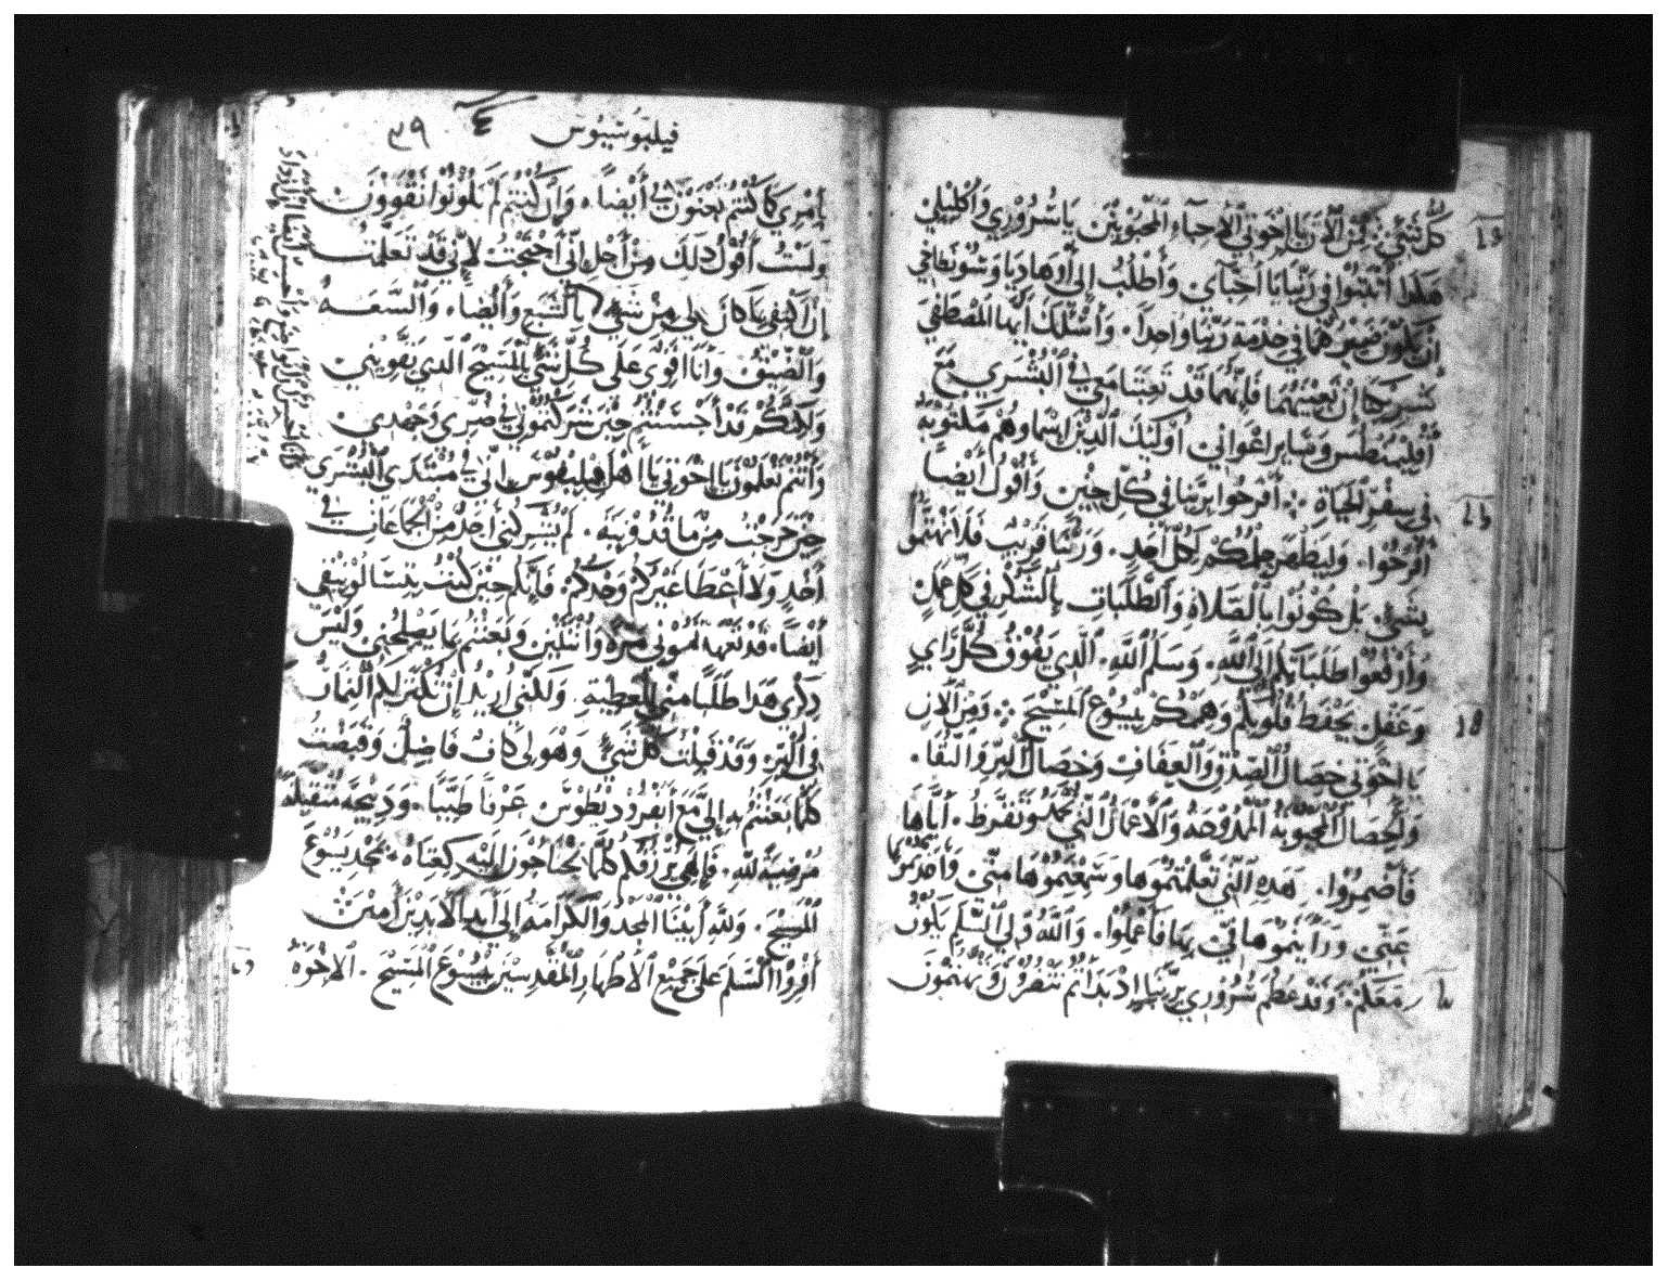 كُلُّ شَيْءٍ فَمِنَ ٱلْآنَ يَا إِخْوَتِي ٱلْأَحِبَّاءِ ٱلْمَحْبُوبِينَ يَا سُرُوْرِي وَأَكْلِيلِي
هَكَذَا أُثْبُتُوْا فِي رَبِّنَا يَا أَحِبَّاي وَأَطْلُبُ إِلَى أَوْهَادِيَا وَسُوْنطَاخِي
إِنْ يَكُوْنَ ضَمِيْرُهُمَا فِي خِدْمَةِ رَبِّنَا وَاحِداً. وَأَسْئَلُكَ أَيُّهَا ٱلْمُصْطَفَي
شَرِيْكَنَا إِنْ تُعِيْنَهُمَا فَإِنَّهُمَا قَدْ تَعِبَتَا مَعِي فِي ٱلْبُشْرَي مَعَ
أَقْلِيْمُنْطُسَ وَسَايِرِ اعْوَانِي أُوْلَيِكَ ٱلَّذِيْنَ اسْمَاوهُمْ مَكْتُوْبَةٌ
فِي سِفْرِ ٱلْحَيَاةِ ۞ أَفْرَحُوا بِرَبِّنَا فِي كُلِّ حِيْنٍ وَأَقُولُ أَيْضاً
أَفْرَحُوا. وَلْيَظْهَر حِلْمُكُمْ لِكُلِّ أَحَدٍ. وَرَبُّنَا قَرِيْبٌ فَلَا تَهْتَمُّو
بِشَيْءٍ. بَلْ كُوْنُوا بِٱلصَّلَاةِ وَٱلطَّلِبَاتِ بِٱلشُّكْرِ فِي كُلِّ عَمَلٍ
وَأَرْفَعُوْا طَلَبَاتِكُم إِلَى ٱللَّهِ. وَسَلَمُ ٱللَّهِ. ٱلَّذِي يَفُوْقُ كُلَّ رَايٍ
وَعَقْلٍ يَحْفَظُ قُلُوبَكُم وَهِمَمَكُمْ بِيَسُوْعَ ٱلْمَسِيْحِ ۞ وَمِنَ ٱلْآنِ
يَا اخْوَتِي خِصَالُ ٱلصِّدْقِ وَٱلْعَفَافِ وَخِصَالُ ٱلْبِرِّ وَٱلنَّقَا.
وَٱلْخِصَالُ ٱلْمَحْبُوبَةُ ٱلْمَمْدُوْحَةُ وَٱلْأَعْمَالُ ٱلَّتِي تُحْمَدُ وَتُقَرَّظُ. أَيَّاهَا
فَأَضْمِرُوْا. هَذِهِ ٱلَّتِي تَعَلَّمْتُمُوْهَا وَسَمِعْتُمُوْهَا مِنِّي وَأَخَذْتُمُوْهَا
عَنِّي وَرَأَيْتُمُوْهَا فِيَّ بِهَا فَأَعْمَلُوْا. وَٱللَّهُ وَلِيُّ ٱلسَّلَمِ يَكُوْنُ
مَعَكُمْ. وَقَدْ عَظُمَ سُرُوْرِي بِرَبِّنَا إِذْ بَدَأْتُمْ تَنْظُرُوْنَ وَتَهْتَمُّوْنَ
فيلبوسيوس ٤ ٣٩
بِأَمْرِي كَمَا كُنْتُمْ تَعْنَوْنَ بِي أَيْضاً. وَأَنْ كُنْتُمْ لَمْ تَكُوْنُوْا تَقْوَوْنَ
وَلَسْتُ أَقُوْلُ ذَلِكَ مِنْ أَجْلِ انِّي أَحْتَجْتُ لِإَنِّي قَدْ تَعَلَّمْتُ
إِنْ اكْتَفِي بِمَا كَانَ لِي مِنْ شَيْءٍ بِٱلشِّبَعِ وَأَيْضاً. وَٱلسَّعَهُ
وَٱلضِّيْقُ وَأَنَا أَقْوَى عَلَى كُلِّ شَيْءٍ بِٱلْمَسِيْحِ ٱلَّذِي يُقَوِّيْنِي
وَلَكِنَّكُمْ قَدْ أَحْسَنْتُمْ حِيْنَ شَرَكْتُمُوْنِي فِي ضُرِّي وَجَهْدِي
وَأَنْتُمْ تَعْلَمُوْنَ يَا إِخْوَتِي يَا أَهْلَ فِيْلِبْفُوْسَ انِّي فِي مُبْتَدَي ٱلْبُشْرَي
حِيْنَ خَرَجْتُ مِنْ مَاقَدُوْنِيَةَ. لَمْ يُشْرِكْنِي أَحَدٌ مِنَ ٱلْجَمَاعَاتِ فِي
أَخْذٍ وَلَا أَعْطَا غَيْرَكُمْ وَحْدَكُمْ. فَإِنَّكُم حِيْنَ كُنْتُ بِتِسَّالُوْنِيْقِي
أَيْضاً. قَدْ تَعَهَّدْتُمُوْنِي مَرَّةً وَاُثْنَتَيْنِ وَبَعَثْتُمْ بِمَا يَصْلِحُنِي وَلَيْسَ
ذِكْرِي هَذَا طَلَباً مِنِّي لِلْعَطِيَّةِ. وَلَكِنِّي أُرِيْدُ إِنْ تَكْثُرَ لَكُمُ ٱلثِّمَارُ
فِي ٱلْبِرِّ. وَقَدْ قَبِلْتُ كُلَّ شَيْءٍ وَهْوَ لِي كَافٌ فَاضِلٌ وَقَبَضْتُ
كُلَّمَا بَعَثْتُمْ بِهِ إِلَيَّ مَعَ أَبَفْرُوْدِيْطُوْسَ عَرْفاً طَيِّباً. وَذَبِيْحَةً مُتَقَبَّلَةً
مُرْضِيَةً لِلَّهِ. فَإِلَهِي يَرْزُقُكُم كُلَّمَا تَحْتَاجُوْنَ إِلَيْهِ كَغِنَاهُ بِمَجْدِ يَسُوْعَ
ٱلْمَسِيْحِ. وَللَّهِ أَبِيْنَا ٱلْمَجْدُ وَٱلْكَرَامَةُ إِلَى أَبَدِ ٱلْآبَدِيْنَ أَمِيْنَ
أَقْرِوا ٱلسَّلَمَ عَلَى جَمِيْعِ ٱلْأَطْهَارِ ٱلْمُقَدَّسِيْنَ بِيَسُوْعَ ٱلْمَسِيْحِ. ٱلْاخْوَةُ